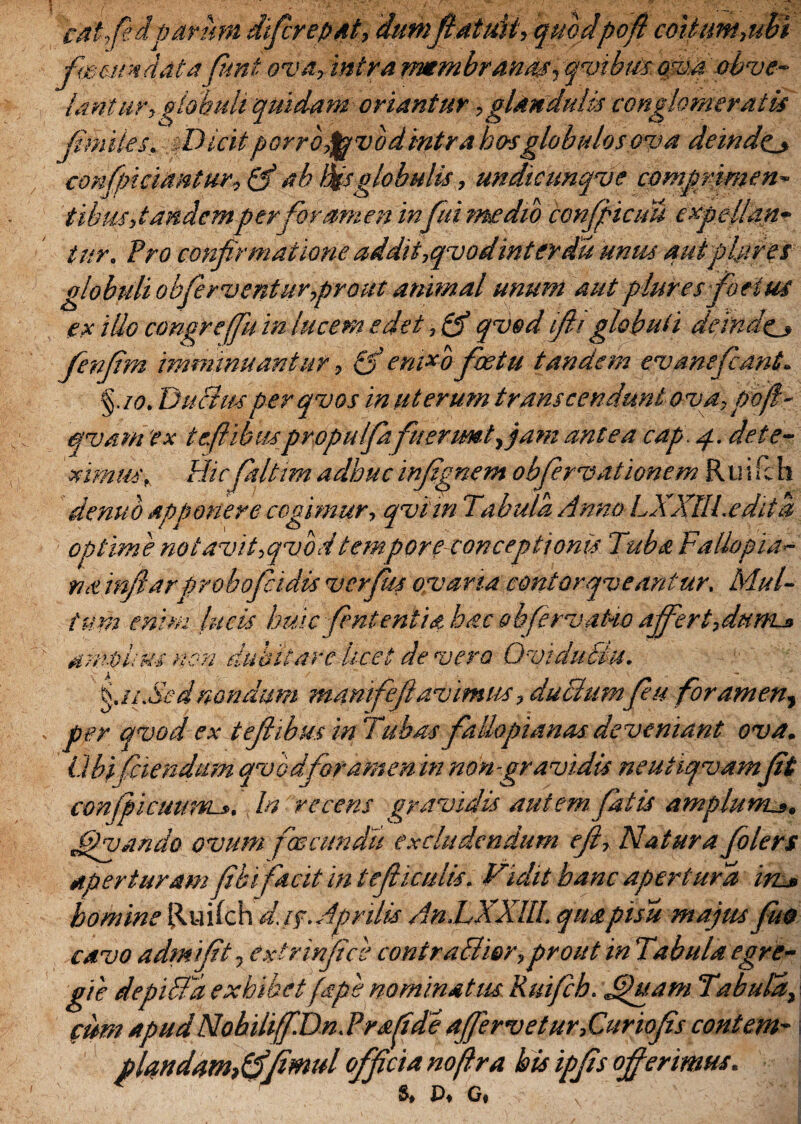 cat, sed parùm discrepat, dum statuit, quòd post coitum, ubi
fœcundata sunt ova, intra membranas, qvibus ova obve-
lantur, globuli quidam oriantur, glandulis conglomeratis
similes. Dicit porrò, qvòd intra hos globulos ova deinde
conspiciantur, & ab his globulis, undicunqve comprimen-
tibus, tandem per foramen in sui medio conspicuū expellan-
tur. Pro confirmatione addit, qvod interdū unus aut plures
globuli observentur, prout animal unum aut plures foetus
ex illo congressu in lucem edet, & qvod isti globuli deinde
sensim imminuantur, & enixo fœtu tandem evanescant.
§. 10. Ductus per qvos in uterum transcendunt ova, post-
qvam ex testibus propulsa fuerunt, jam antea cap. 4. dete-
ximus. Hic saltim adhuc insignem observationem Ruisch
denuò apponere cogimur, qvi in Tabulâ Anno LXXIII. editâ
optimè notavit, qvòd tempore conceptionis Tubæ Fallopia-
næ instar proboscidis versus ovaria contorqveantur. Mul-
tum enim lucis huic sententiæ hæc observatio affert, dum
amplius non dubitare licet de vero Oviductu.
§. 11. Sed nondum manifestavimus, ductum seu foramen,
per qvod ex testibus in Tubas fallopianas deveniant ova.
Ubi sciendum qvòd foramen in non-gravidis neutiqvam sit
conspicuum. In recens gravidis autem satis amplum.
Qvando ovum fœcundū excludendum est, Natura solers
aperturam sibi facit in testiculis. Vidit hanc aperturā in
homine Ruisch d. 15. Aprilis An. LXXIII. quæ pisū majus suo
cavo admisit, extrinsicè contractior, prout in Tabula egre-
giè depictâ exhibet sæpè nominatus Ruisch. Quam Tabulā,
cùm apud Nobiliss. Dn. Præside asservetur, Curiosis contem-
plandam, & simul officia nostra his ipsis offerimus.
S. D. G.